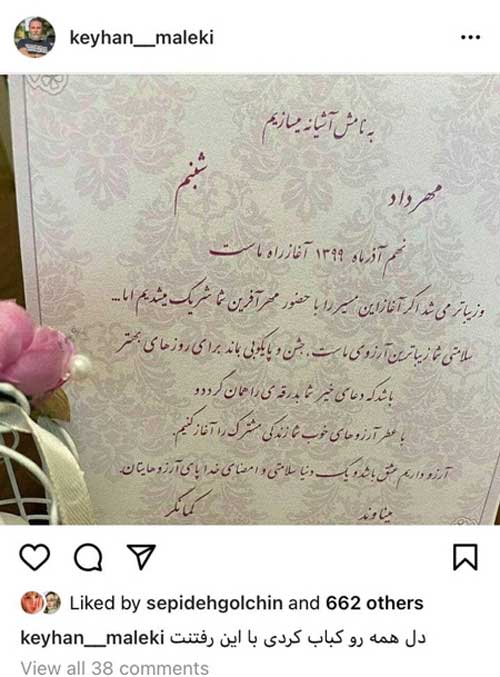 keyhan__maleki
به نامش آشیانه میسازیم
شبنم
مهرداد
نهم آذرماه ۱۳۹۹ آغاز راه ماست
و زیباتر می شد اگر آغاز این مسیر را با حضور مهرآفرین شما شریک میشدیم اما...
سلامتی شما زیباترین آرزوی ماست، جشن و پایکوبی بماند برای روزهای بهتر
باشد که دعای خیر شما بدرقه ی راهمان گردد و
با عطر آرزوهای خوب شما زندگی مشترک را آغاز کنیم.
آرزو داریم عشق باشد و یک دنیا سلامتی و امضای خدا پای آرزوهایتان.
میناوند
کمانگر
Liked by sepidehgolchin and 662 others
keyhan__maleki دل همه رو کباب کردی با این رفتنت
View all 38 comments